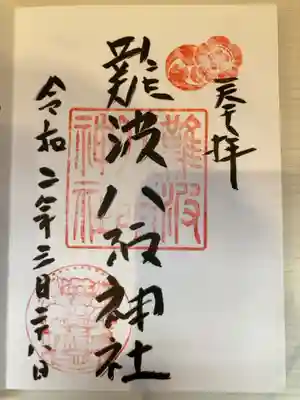 奉拝
難波八阪神社
難波
神社
令和二年三月二十八日